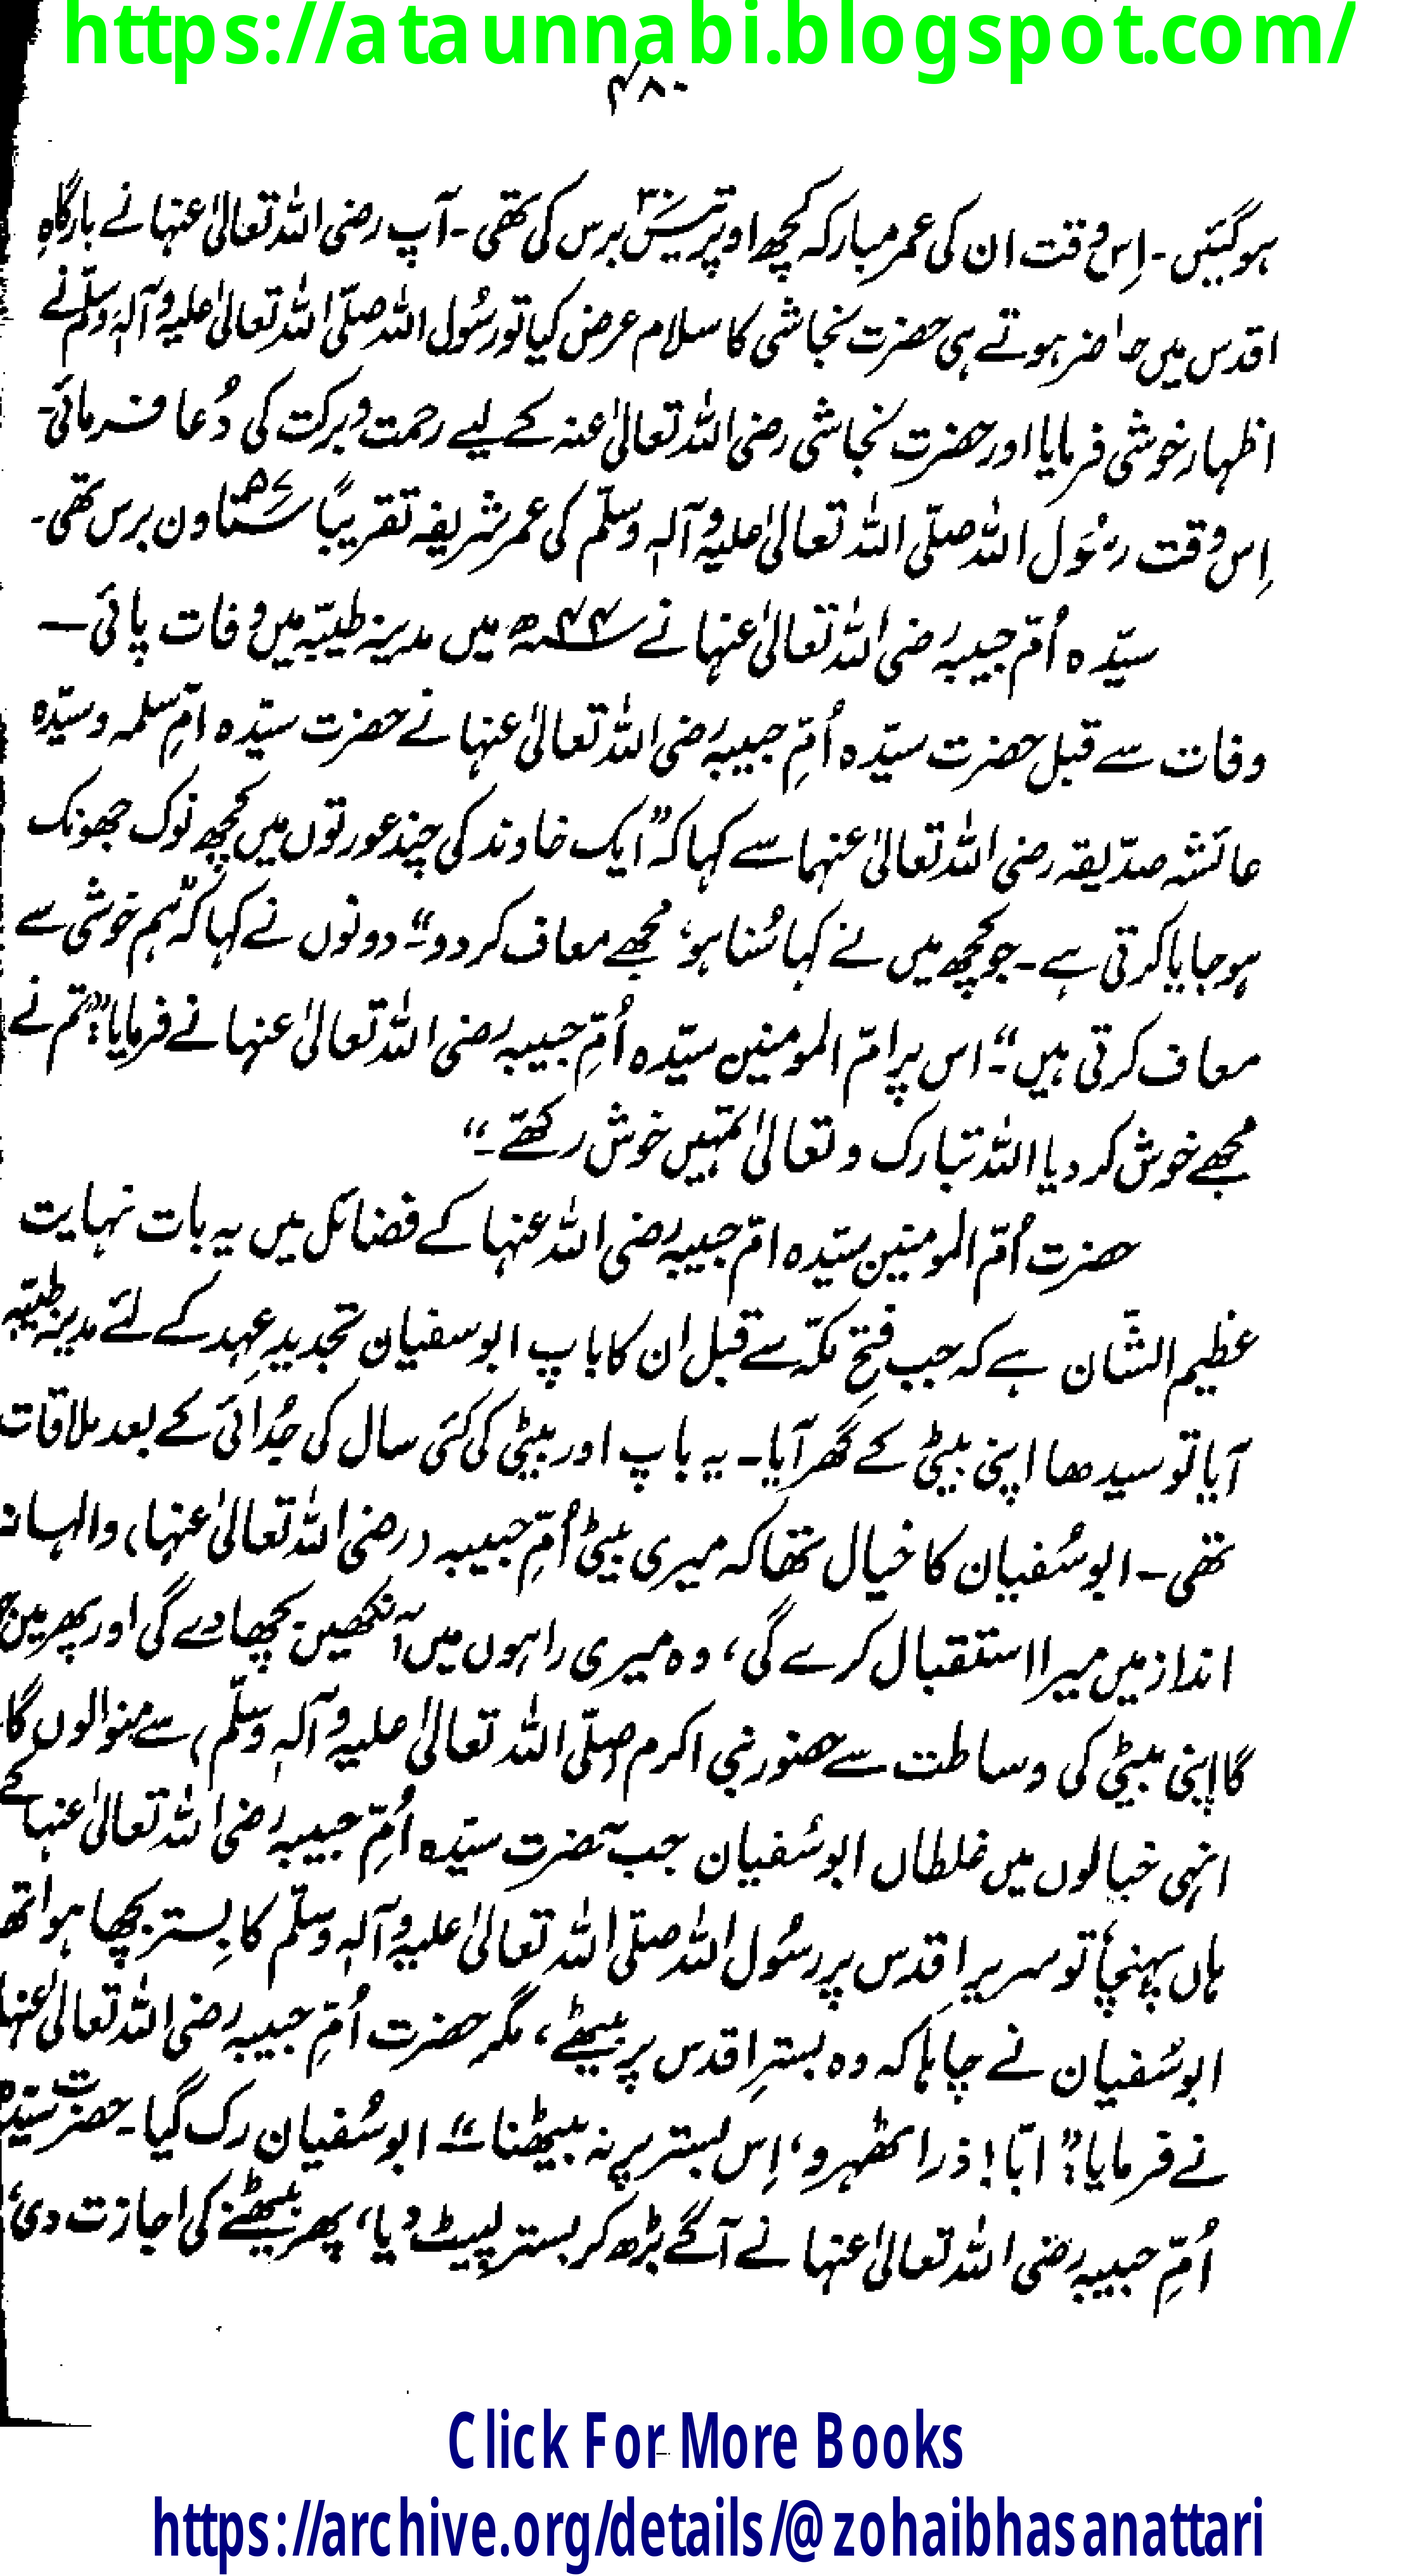 https://ataunnabi.blogspot.com/
۴۸۰
ہوگئیں۔ اِس وقت ان کی عمر مبارکہ کچھ اوپر تیس۳۰ برس کی تھی۔ آپ رضی اللہ تعالیٰ عنہا نے بارگاہِ
اقدس میں حاضر ہوتے ہی حضرت نجاشی کا سلام عرض کیا تو رسُول اللہ صلّی اللہ تعالیٰ علیہ وآلہٖ وسلّم نے
اظہارِ خوشی فرمایا اور حضرت نجاشی رضی اللہ تعالیٰ عنہ کے لیے رحمت و برکت کی دُعا فرمائی۔
اِس وقت رسُول اللہ صلّی اللہ تعالیٰ علیہ وآلہٖ وسلّم کی عمر شریفہ تقریباً ستاون۵۷ برس تھی۔
سیّدہ اُمّ حبیبہ رضی اللہ تعالیٰ عنہا نے ۴۴ھ میں مدینہ طیبّہ میں وفات پائی —
وفات سے قبل حضرت سیّدہ اُمِّ حبیبہ رضی اللہ تعالیٰ عنہا نے حضرت سیّدہ امِّ سلمہ و سیّدہ
عائشہ صدّیقہ رضی اللہ تعالیٰ عنہما سے کہا کہ ”ایک خاوند کی چند عورتوں میں کچھ نوک جھونک
ہو جایا کرتی ہے۔ جو کچھ میں نے کہا سُنا ہو، مجھے معاف کر دو“۔ دونوں نے کہا کہ ”ہم خوشی سے
معاف کرتی ہیں“۔ اس پر امّ المومنین سیّدہ اُمِّ حبیبہ رضی اللہ تعالیٰ عنہا نے فرمایا: ”تم نے
مجھے خوش کر دیا اللہ تبارک و تعالیٰ تمہیں خوش رکھے۔“
حضرت اُمّ المومنین سیّدہ امّ حبیبہ رضی اللہ عنہا کے فضائل میں یہ بات نہایت
عظیم الشّان ہے کہ جب فتحِ مکّہ سے قبل ان کا باپ ابوسفیان تجدیدِ عہد کے لئے مدینہ طیبّہ
آیا تو سیدھا اپنی بیٹی کے گھر آیا۔ یہ باپ اور بیٹی کی کئی سال کی جُدائی کے بعد ملاقات
تھی۔ ابوسُفیان کا خیال تھا کہ میری بیٹی اُمِّ حبیبہ (رضی اللہ تعالیٰ عنہا) والہانہ
انداز میں میرا استقبال کرے گی، وہ میری راہوں میں آنکھیں بچھا دے گی اور پھر میں
گا اپنی بیٹی کی وساطت سے حضور نبی اکرم (صلّی اللہ تعالیٰ علیہ وآلہٖ وسلّم) سے منوا لوں گا
انہی خیالوں میں غلطاں ابوسُفیان جب حضرت سیّدہ اُمِّ حبیبہ رضی اللہ تعالیٰ عنہا کے
ہاں پہنچا تو سریرِ اقدس پر رسُول اللہ صلّی اللہ تعالیٰ علیہ وآلہٖ وسلّم کا بِستر بچھا ہوا تھا
ابوسُفیان نے چاہا کہ وہ بسترِ اقدس پر بیٹھے، مگر حضرت اُمِّ حبیبہ رضی اللہ تعالیٰ عنہا
نے فرمایا: ”ابّا! ذرا ٹھہرو، اِس بستر پر نہ بیٹھنا“۔ ابوسُفیان رک گیا۔ حضرت سیّدہ
اُمِّ حبیبہ رضی اللہ تعالیٰ عنہا نے آگے بڑھ کر بستر لپیٹ دیا، پھر بیٹھنے کی اجازت دی،
Click For More Books
https://archive.org/details/@zohaibhasanattari